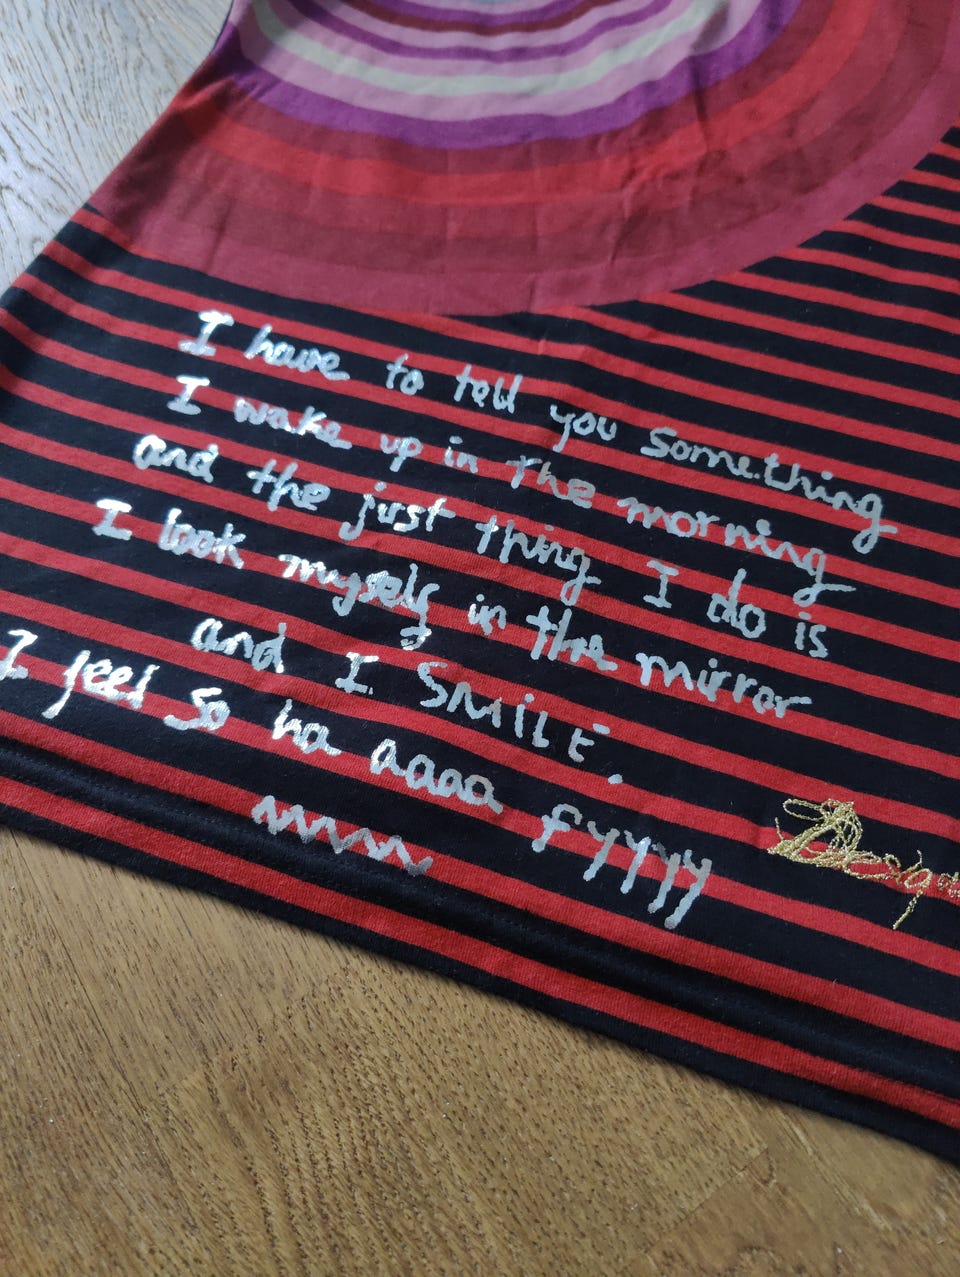 I have to tell you something
I wake up in the morning
and the just thing I do is
I look myself in the mirror
and I SMiLE.
I feel so ha aaaa fyyyy
Desigu